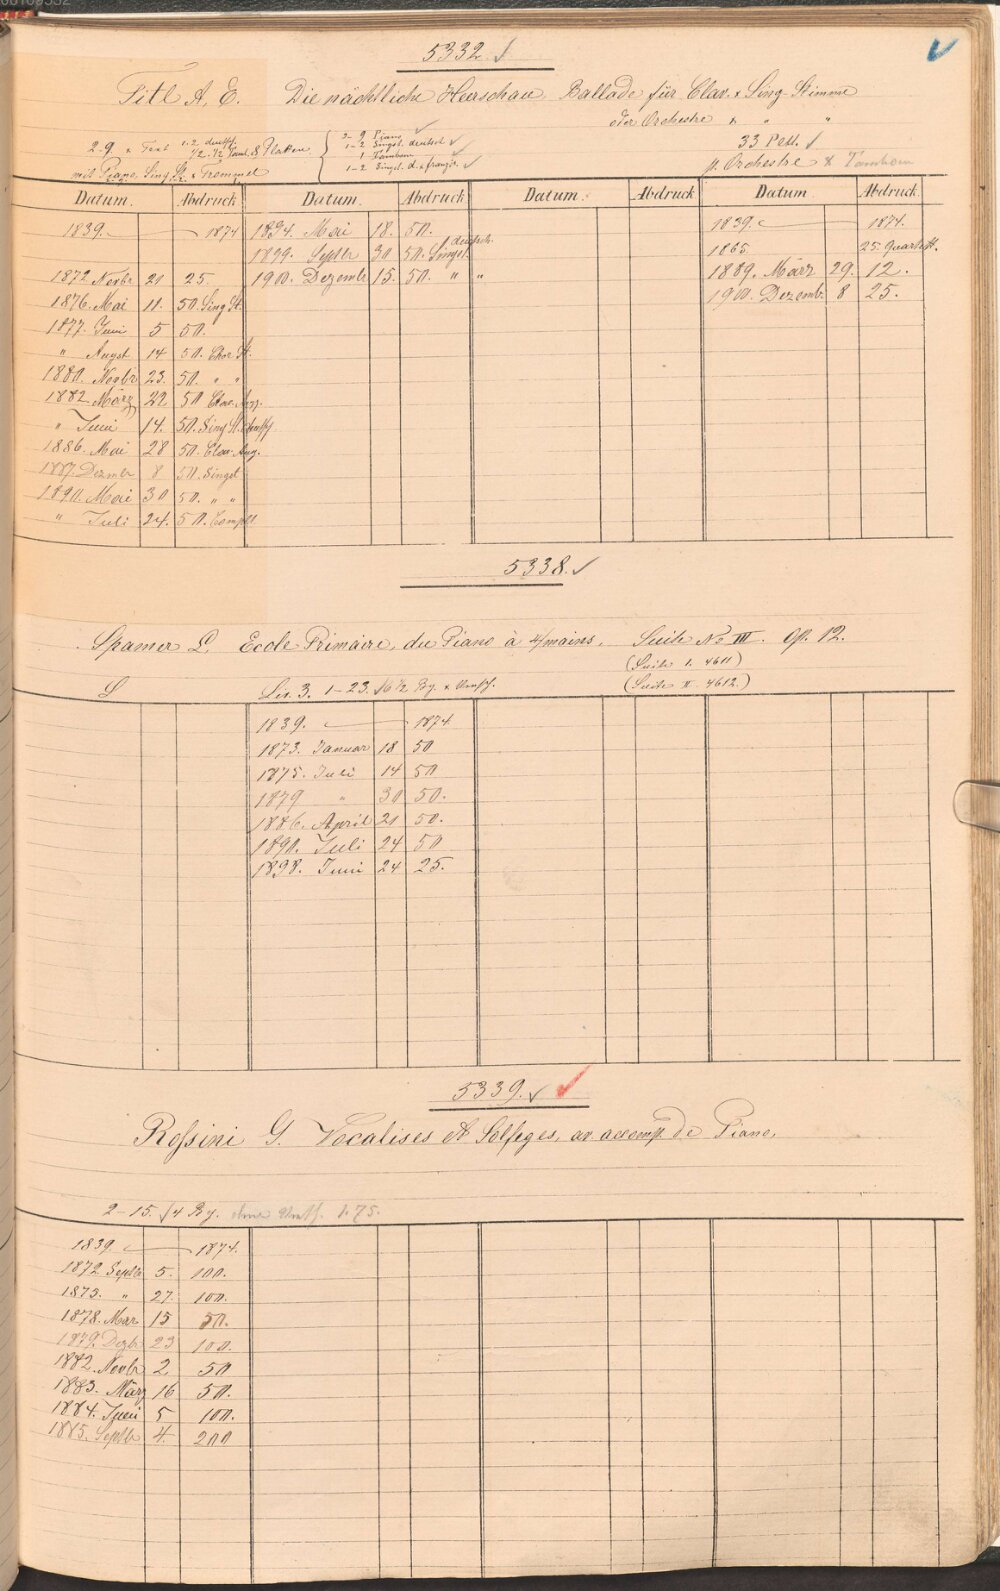 5332.
Titl A. E. Die nächtliche Heerschau Ballade für Clav. & Sing-Stimme
oder Orchestre " " "
2-9 Piano
1-2 Singst. deutsch
1 Tambour
1-2 Singst. d. & franz.
33 Pltt.
p. Orchestre & Tambour
mit Piano Sing St. & Trommel
Datum. Abdruck Datum. Abdruck Datum. Abdruck Datum Abdruck
1839. — 1874
1872 Novbr 21 25.
1876. Mai 11. 50. Sing St.
1877. Juni 5 50.
" Augst 14 50. Chor St.
1880. Novbr 23. 50. " "
1882 März 22 50 Clav. Ausz.
" Juni 14. 50. Sing St.
1886. Mai 28 50. Clav. Aug.
1887. Dezmbr 8 50. Singst
1890. Mai 30 50. " "
" Juli 24. 50. Complt
1894. Mai 18. 50.
1899. Septbr 30 50. deutsch. Singst.
1900. Dezembr 15. 50. " "
1839. — 1874.
1865. 25.
1889. März 29. 12.
1900. Dezemb. 8 25.
5338.
Spamer L. Ecole Primaire, du Piano à 4/mains, Suite No III. Op. 12.
(Suite I. 4611)
(Suite II. 4612.)
S Ser. 3. 1-23.
1839. — 1874
1873. Januar 18 50
1875. Juli 14 50
1879 " 30 50.
1886. April 21 50.
1890. Juli 24 50
1898. Juni 24 25.
5339.
Rossini G. Vocalises et Solfeges, av. accomp. de Piano.
2-15. /4 Bg. ohne 1.75.
1839 — 1874.
1872 Septbr 5. 100.
1873. " 27. 100.
1878. Mär 15 50.
1879. Dezbr 23 100.
1882. Novbr 2 50
1883. März 16 50.
1884. Juni 5 100.
1885. Septbr 4. 200